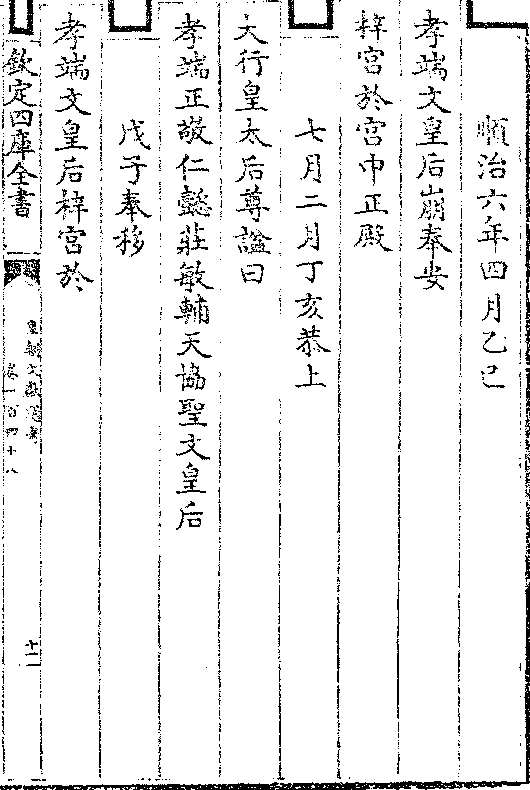 順治六年四月乙巳
孝端文皇后崩奉安
梓宮於宮中正殿
七月二月丁亥恭上
大行皇太后尊諡曰
孝端正敬仁懿莊敏輔天協聖文皇后
戊子奉移
孝端文皇后梓宮於
欽定四庫全書
皇朝文獻通考
卷一百四十八
十二